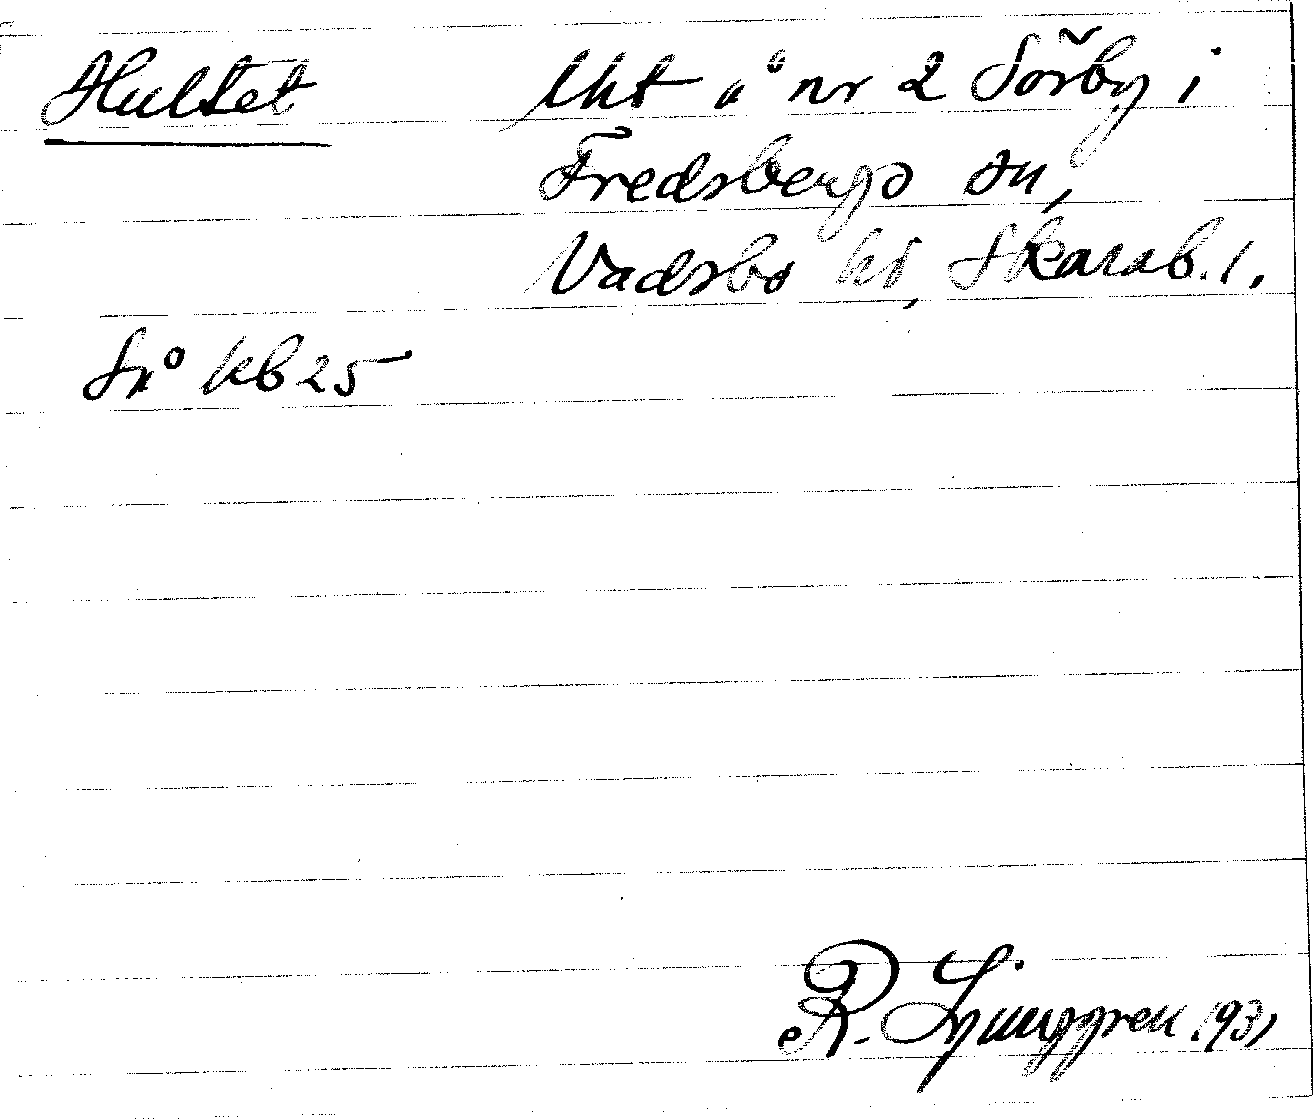 Hultet Uht å nr 2 Sörby i
Fredsbergs sn,
Vadsbo hd, Skarab. l.
Sno kb 25
R. Ljunggren 1931